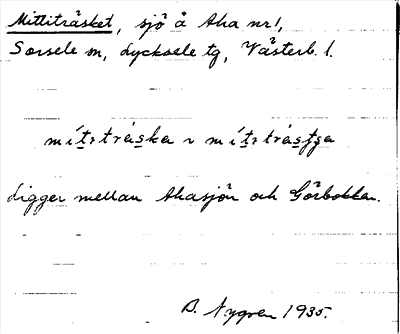 Mittiträsket, sjö å Aha nr 1,
Sorsele sn, Lycksele tg, Västerb. l.
mítitráska ~ mítitrásʃa
Ligger mellan Ahasjön och Görbokken.
B. Nygren 1935.